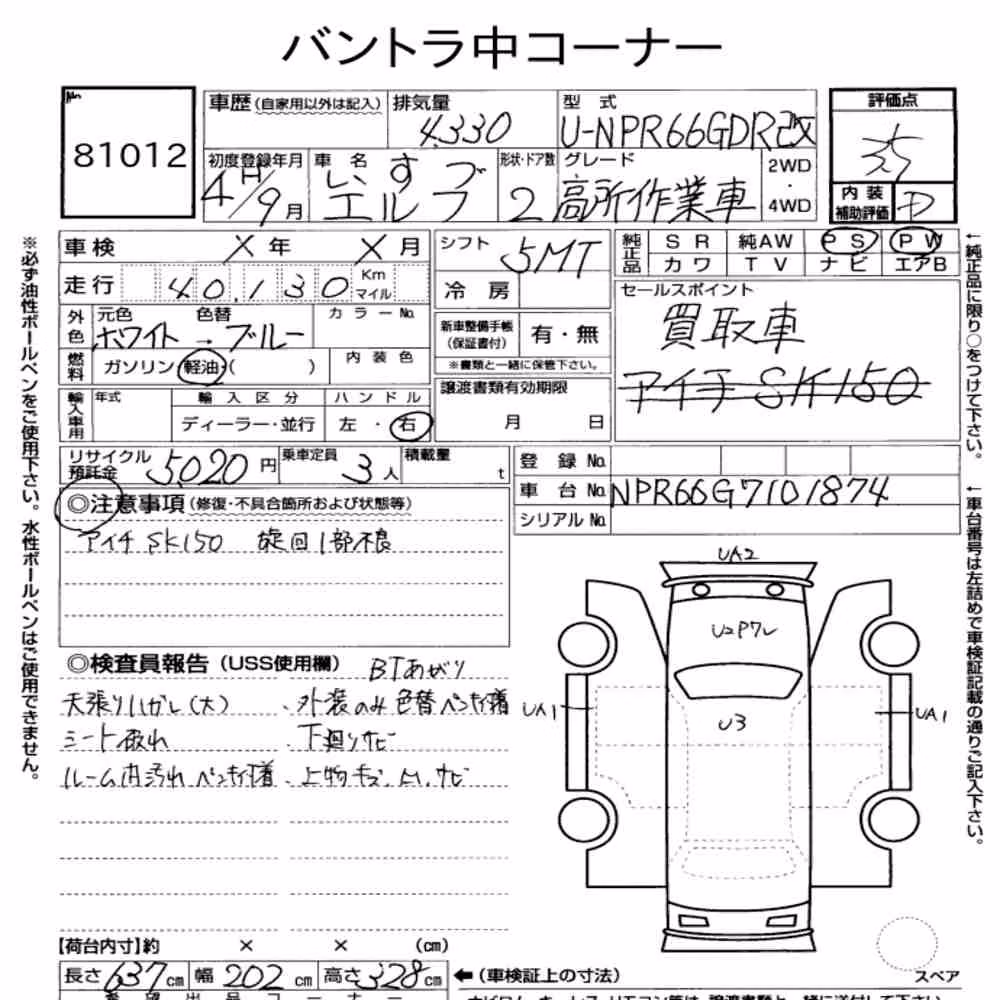 バントラ中コーナー
No. 81012
車歴(自家用以外は記入) 排気量 4.330 型式 U-NPR66GDR改 評価点 3.5
初度登録年月 4年/9月 車名 いすゞ エルフ 形状・ドア数 2 グレード 高所作業車 2WD・4WD 内装補助評価 D
車検 X年 X月
走行 40,130 Km マイル
外色 元色 ホワイト → 色替 ブルー カラーNo.
燃料 ガソリン・軽油・( ) 内装色
輸入車用 年式 輸入区分 ディーラー・並行 ハンドル 左・右
リサイクル預託金 5,020円 乗車定員 3人 積載量 t
シフト 5MT
冷房
新車整備手帳(保証書付) 有・無
※書類と一緒に保管下さい。
譲渡書類有効期限
月 日
純正品 SR 純AW PS PW
カワ TV ナビ エアB
セールスポイント
買取車
アイチ SK150
登録No.
車台No. NPR66G7101874
シリアルNo.
◎注意事項(修復・不具合箇所および状態等)
アイチ SK150 旋回1部不良
◎検査員報告(USS使用欄) BTあがり
天張りハガレ(大) ・外装のみ色替ペンキ付着
シート破れ ・下廻りサビ
ルーム内汚れ ペンキ付着 ・上物キズ、凹、サビ
UA2
U2Pワレ
U3
UA1
UA1
スペア
【荷台内寸】約 × × (cm)
長さ637cm 幅202cm 高さ328cm ←(車検証上の寸法)
希望出品コーナー
※必ず油性ボールペンをご使用下さい。水性ボールペンはご使用できません。
←純正品に限り○をつけて下さい。
←車台番号は左詰めで車検証記載の通りご記入下さい。